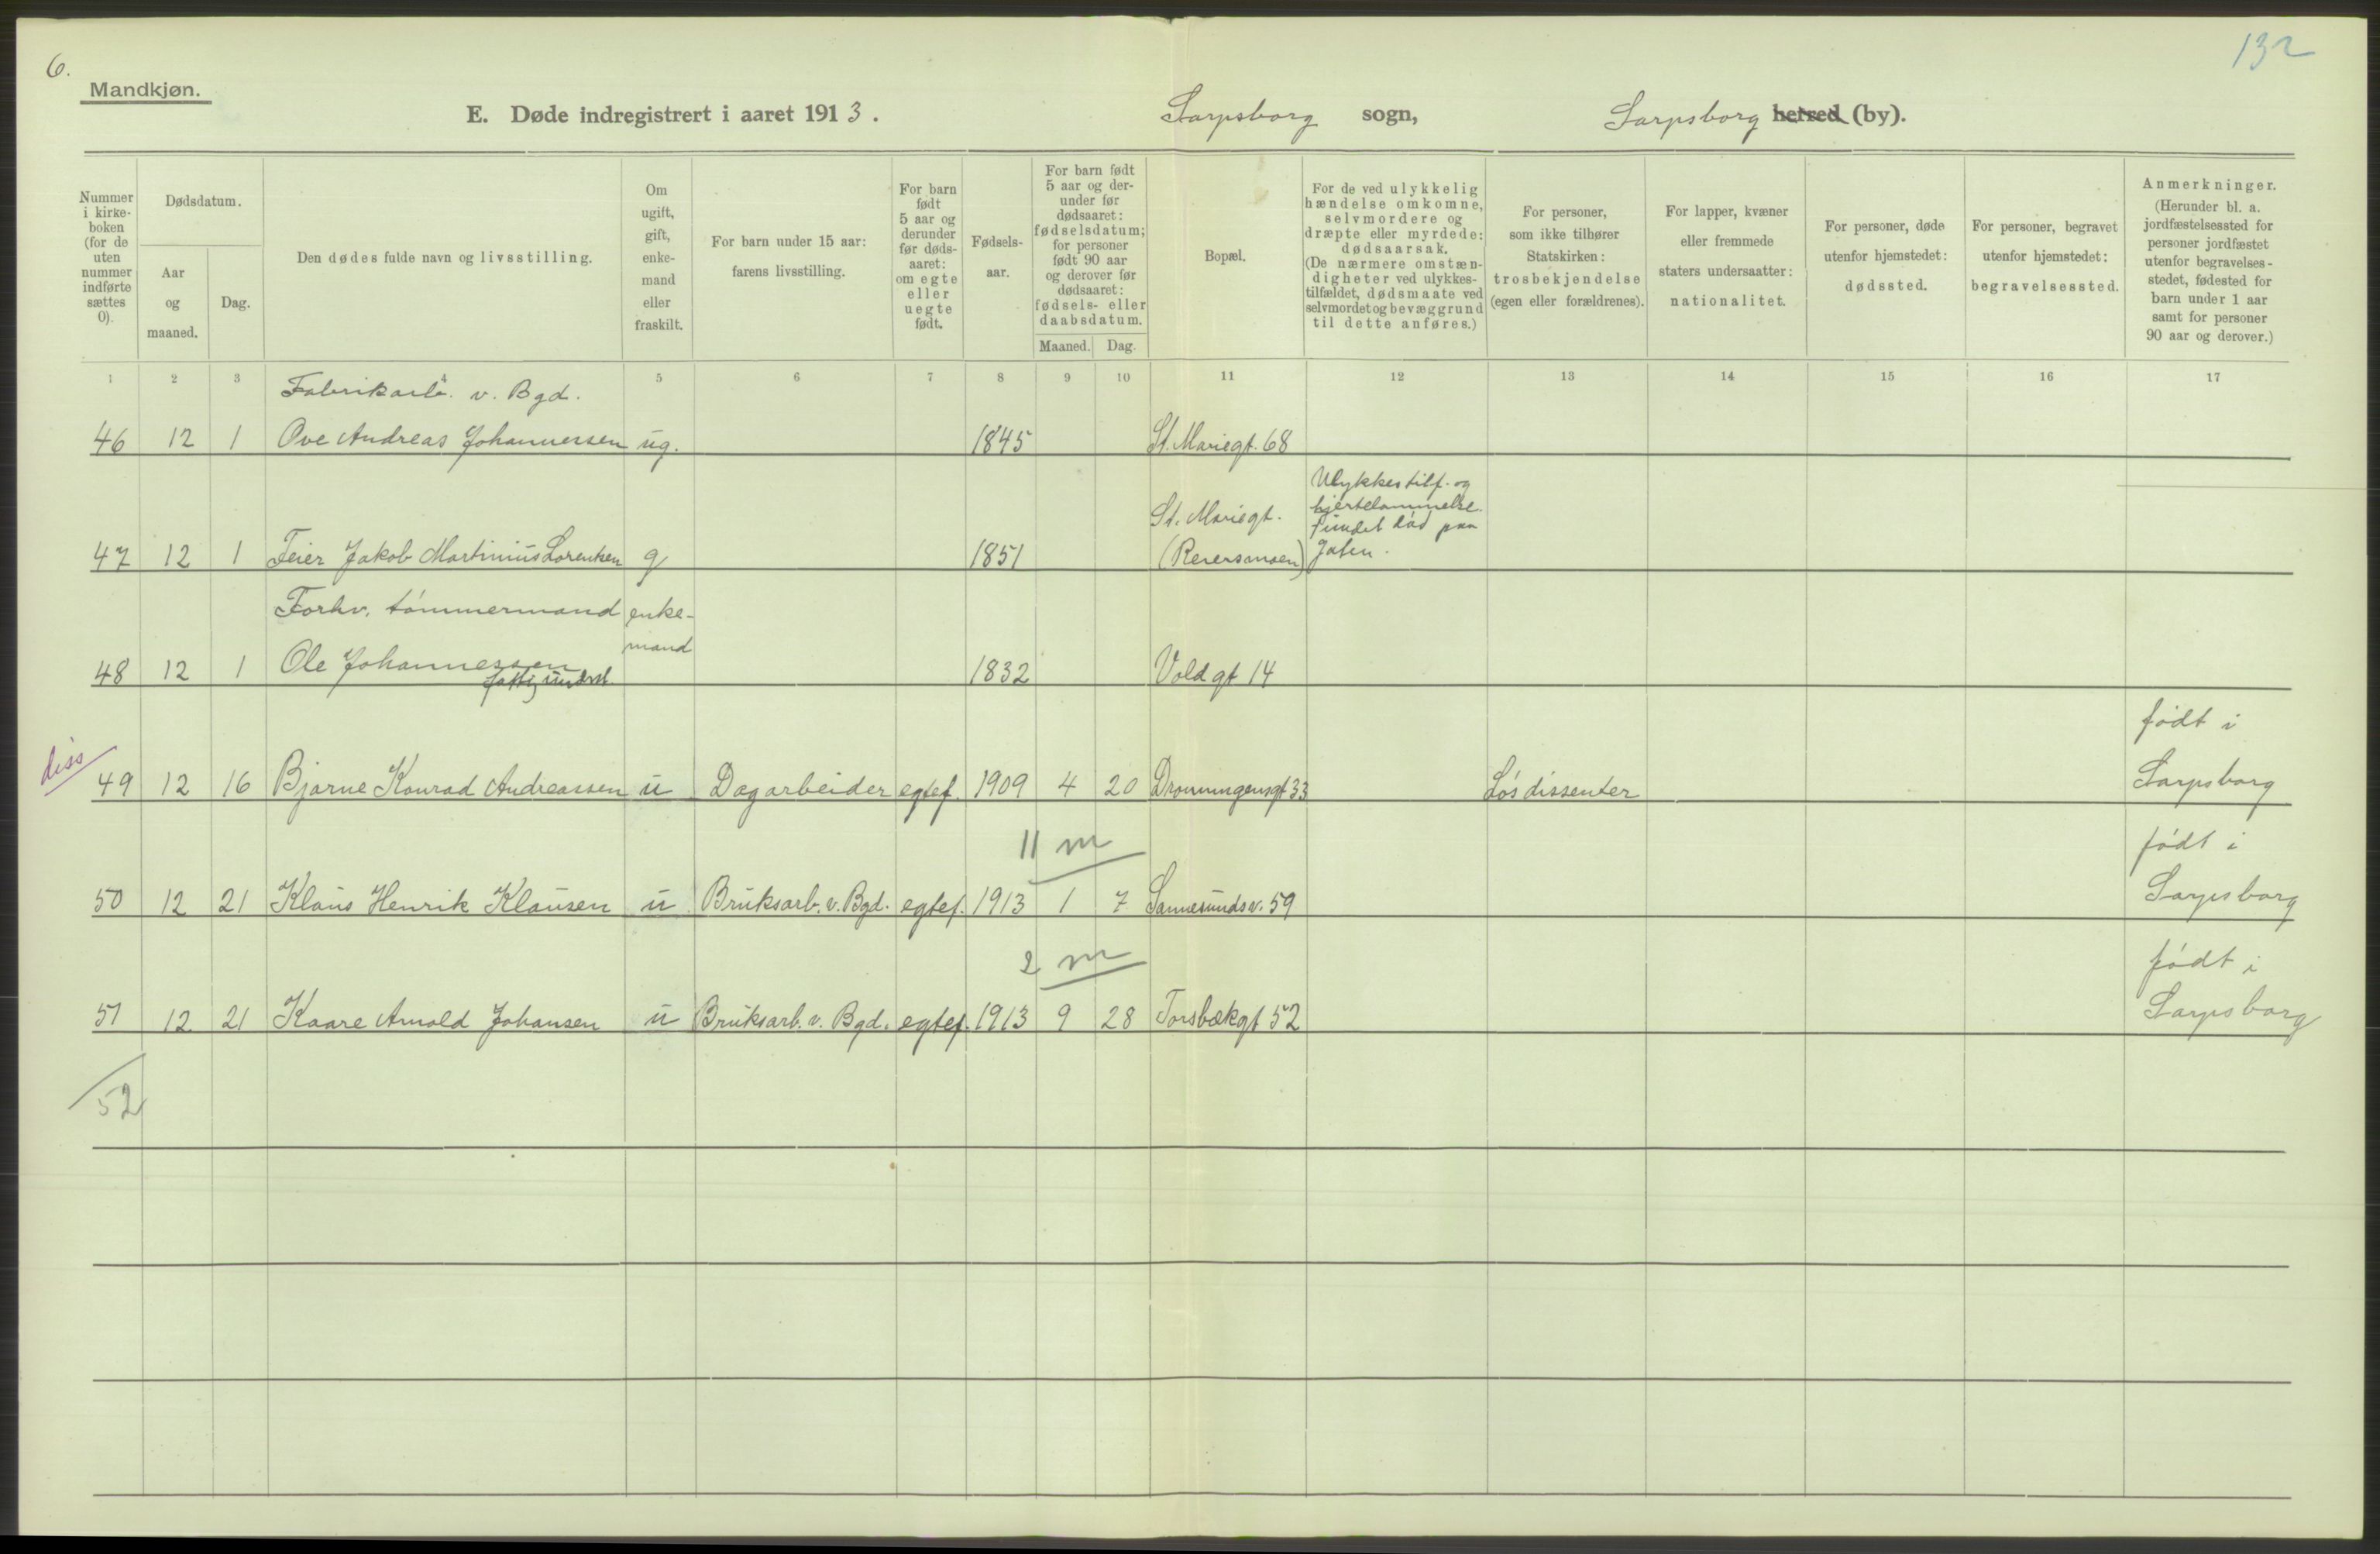 6.
132
Mandkjøn.
E. Døde indregistrert i aaret 1913.
Sarpsborg sogn,
Sarpsborg herred (by).
Nummer i kirke-boken (for de uten nummer indførte sættes 0).
Dødsdatum.
Aar og maaned.
Dag.
Den dødes fulde navn og livsstilling.
Om ugift, gift, enke-mand eller fraskilt.
For barn under 15 aar: farens livsstilling.
For barn født 5 aar og derunder før døds-aaret: om egte eller uegte født.
Fødsels-aar.
For barn født 5 aar og der-under før dødsaaret: fødselsdatum; for personer født 90 aar og derover før dødsaaret: fødsels- eller daabsdatum.
Maaned. Dag.
Bopæl.
For de ved ulykkelig hændelse omkomne, selvmordere og dræpte eller myrdede: dødsaarsak. (De nærmere omstæn-digheter ved ulykkes-tilfældet, dødsmaate ved selvmordet og bevæggrund til dette anføres.)
For personer, som ikke tilhører Statskirken: trosbekjendelse (egen eller forældrenes).
For lapper, kvæner eller fremmede staters undersaatter: nationalitet.
For personer, døde utenfor hjemstedet: dødssted.
For personer, begravet utenfor hjemstedet: begravelsessted.
Anmerkninger. (Herunder bl. a. jordfæstelsessted for personer jordfæstet utenfor begravelses-stedet, fødested for barn under 1 aar samt for personer 90 aar og derover.)
1 2 3 4 5 6 7 8 9 10 11 12 13 14 15 16 17
Fabrikarb. v. Bgd.
46 12 1 Ove Andreas Johannessen ug. 1845 St. Mariegt. 68
Ulykkestilf. og
St. Mariegt. hjertelammelse.
fundet død paa
47 12 1 Feier Jakob Martinius Lorentsen g 1851 (Reiersmoen) Gaten.
Forhv. tömmermand enke-
mand
48 12 1 Ole Johannessen 1832 Voldgt 14
fattigunderst.
født i
diss
49 12 16 Bjarne Konrad Andreassen u Dagarbeider egtef. 1909 4 20 Dronningensgt 33 Løs dissenter Sarpsborg
11 m
født i
50 12 21 Klaus Henrik Klausen u Bruksarb. v. Bgd. egtef. 1913 1 7 Sannesundsv. 59 Sarpsborg
2 m
født i
51 12 21 Kaare Arnold Johansen u Bruksarb. v. Bgd. egtef. 1913 9 28 Torsbækgt 52 Sarpsborg
52